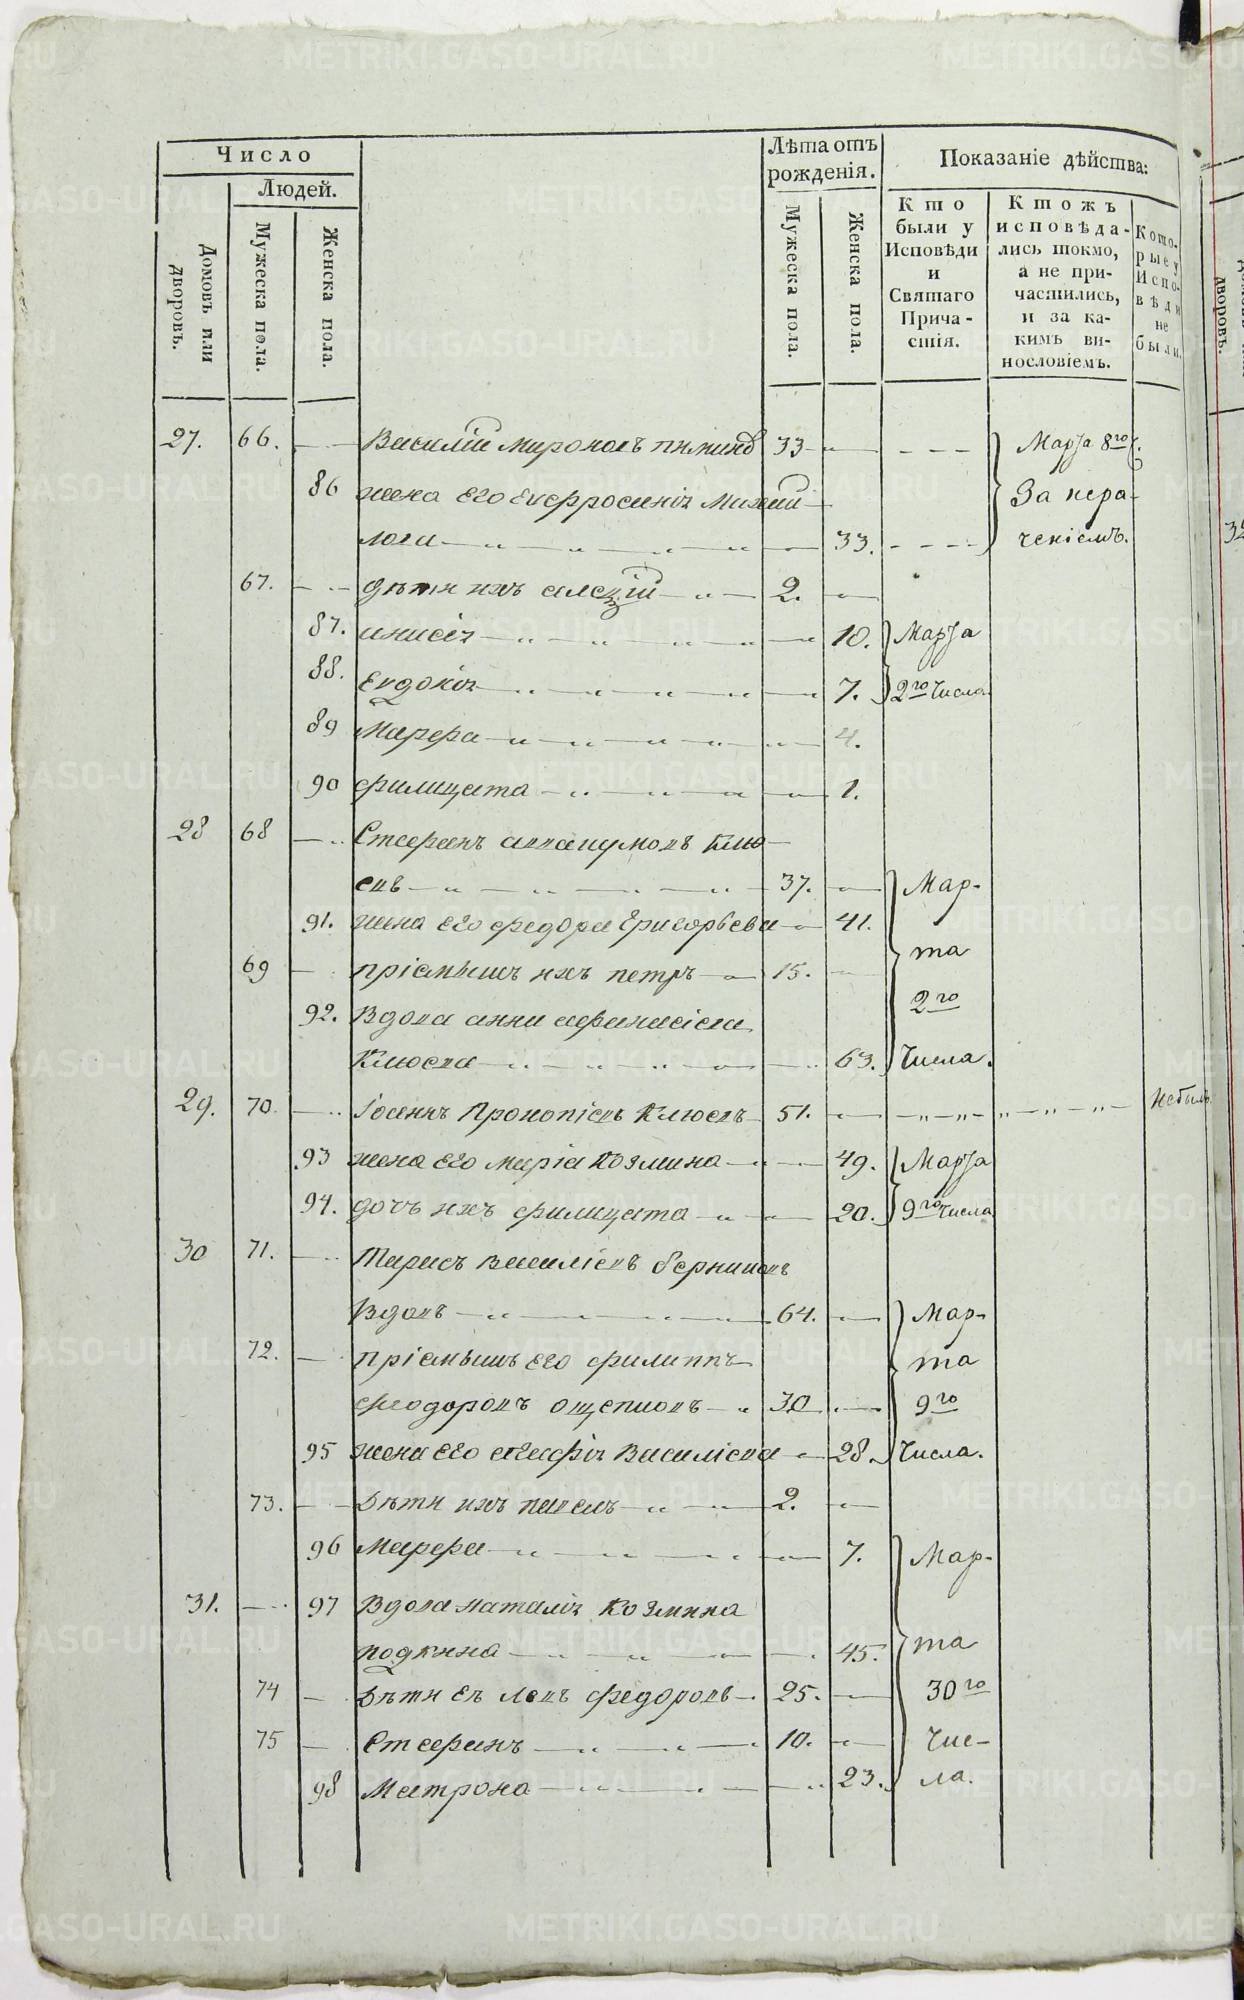 Число
Людей.
Домовъ или дворовъ.
Мужеска пола.
Женска пола.
Лѣта отъ рожденія.
Мужеска пола.
Женска пола.
Показаніе дѣйства:
Кто были у Исповѣди и Святаго Причастія.
Ктожъ исповѣдались токмо, а не причастились, и за какимъ винословіемъ.
Которые у Исповѣди не были.
27. 66. Василій Мироновъ 33 Марта 8го
86 жена его Евфросинія Михай За нера-
лова 33. ченіемъ.
67. дѣти ихъ 2.
87. анисія 10. Марта
88. Евдокія 7. 2го Числа
89 Марфа 4.
90 филицата 1.
28 68 Стефанъ Клю
евъ 37. Мар-
91. жена его федора Григорьева 41. та
69 пріемышъ ихъ петръ 15.
92. Вдова анна афанасіева 2го
Клюева 63. Числа.
29. 70. Іосифъ Прокопіевъ Клюевъ 51. небылъ
93 жена его марія Козмина 49. Марта
94. дочь ихъ филицата 20. 9го Числа
30 71. Тарасъ Василіевъ
Вдовъ 64. Мар-
72. пріемышъ его филиппъ та
феодоровъ ощепковъ 30 9го
95 жена его агафія Василіева 28. Числа.
73. Дѣти ихъ павелъ 2.
96 Марфа 7. Мар-
31. 97 Вдова наталія Козмина
45. та
74 Дѣти ея Левъ федоровъ 25. 30го
75 Стефанъ 10. Чис-
98 Матрона 23. ла.
METRIKI.GASO-URAL.RU